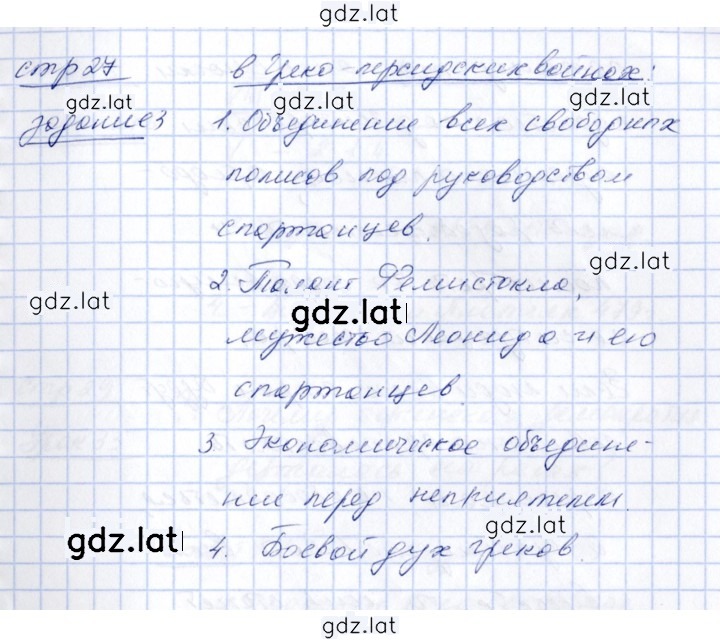 gdz.lat
стр 27 в Греко-персидских войнах:
gdz.lat gdz.lat gdz.lat
задание 3 1. Объединение всех свободных
полисов под руководством
спартанцев.
gdz.lat
2. Талант Фемистокла,
gdz.lat gdz.lat
мужество Леонида и его
спартанцев.
3. Экономическое объедине-
ние перед неприятелем.
gdz.lat
gdz.lat 4. Боевой дух греков.
gdz.lat